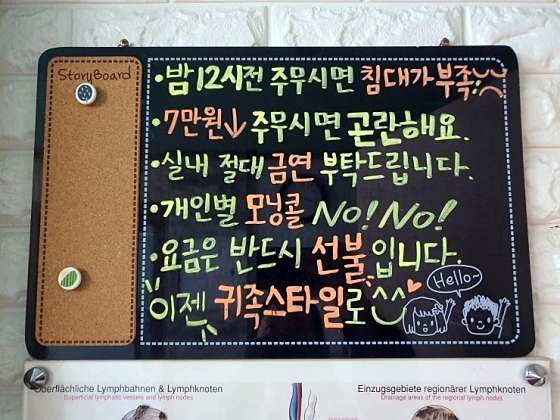 StoryBoard
•밤 12시전 주무시면 침대가 부족
•7만원↓ 주무시면 곤란해요.
•실내 절대 금연 부탁드립니다.
•개인별 모닝콜 NO! NO!
•요금은 반드시 선불입니다.
이젠 귀족스타일로
Hello~
Oberflächliche Lymphbahnen & Lymphknoten
Superficial lymphatic vessels and lymph nodes
Einzugsgebiete regionärer Lymphknoten
Drainage areas of the regional lymph nodes